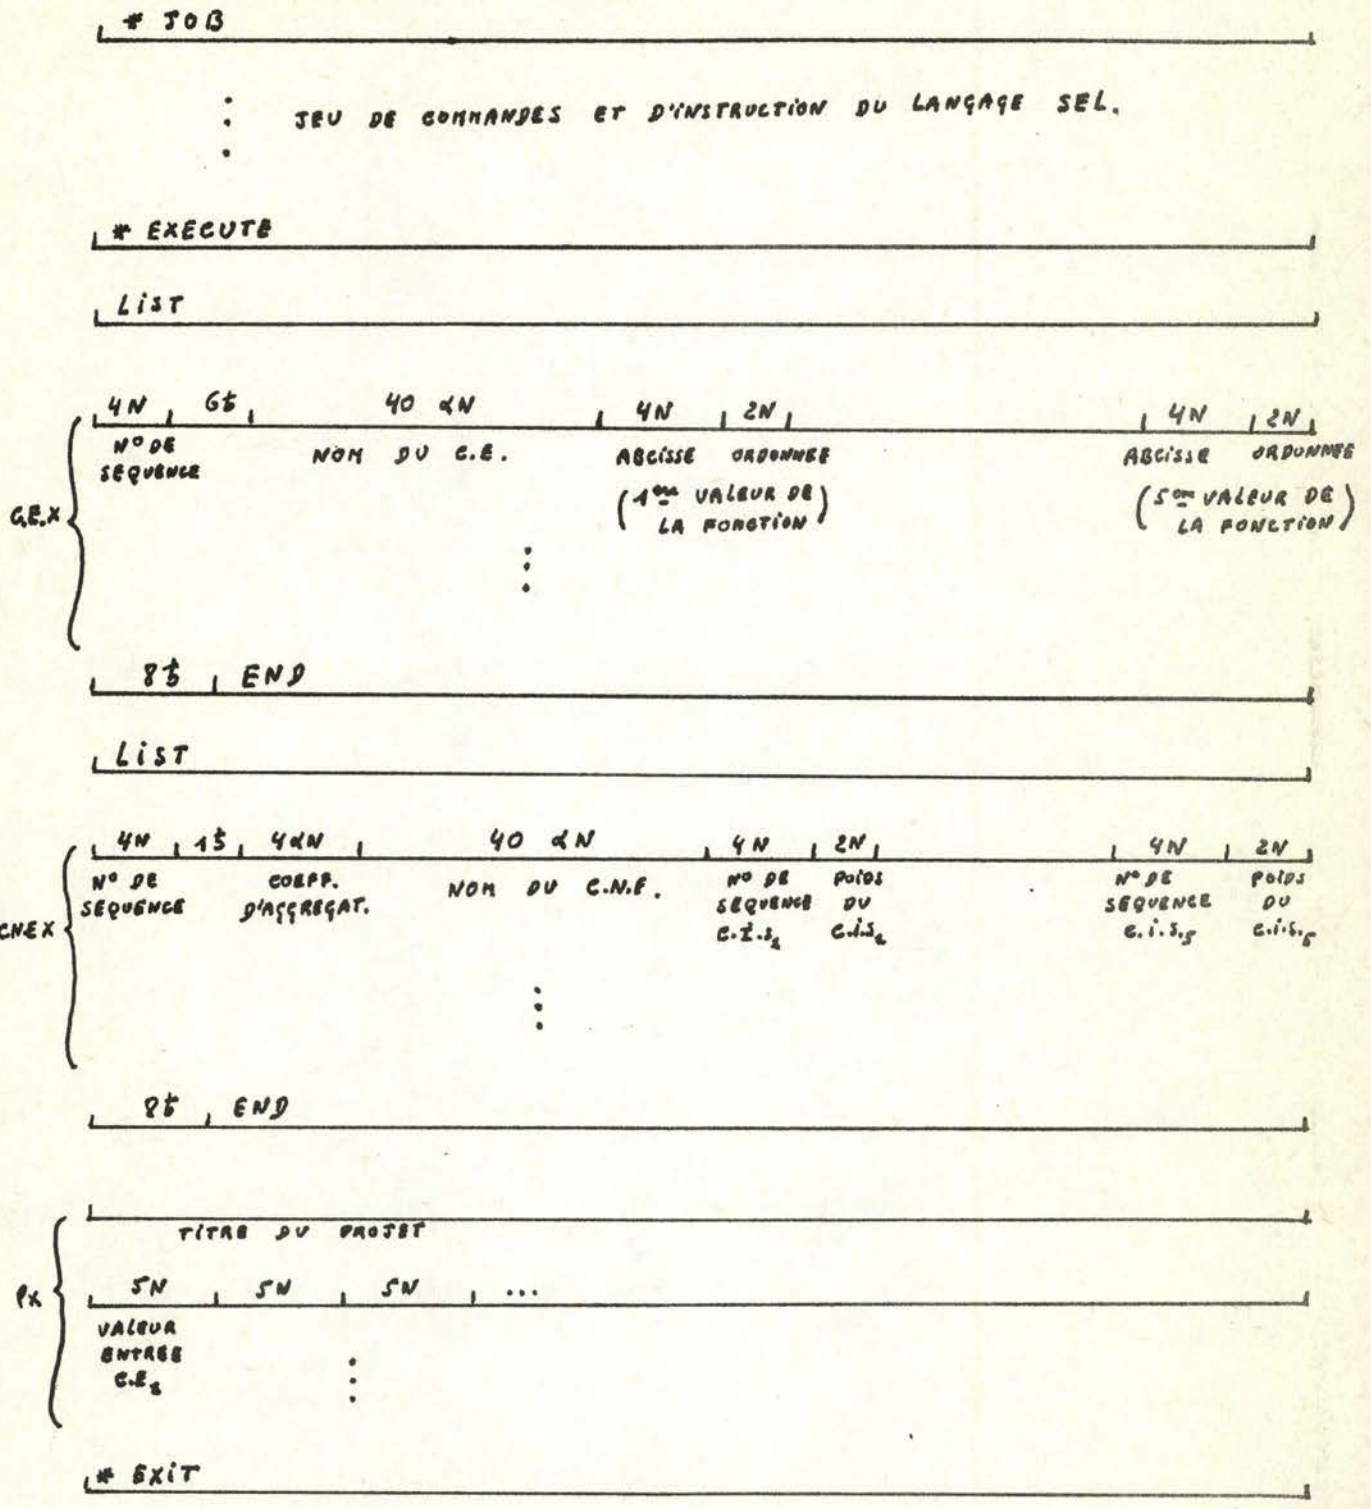 * JOB
JEU DE COMMANDES ET D'INSTRUCTION DU LANGAGE SEL.
* EXECUTE
LiST
4N 6ƀ 40 αN 4N 2N 4N 2N
N° DE SEQUENCE NOM DU C.E. ABCiSSE ORDONNEE ABCiSSE ORDONNEE
(1ere VALEUR DE LA FONCTION) (5eme VALEUR DE LA FONCTION)
C.E.X
8ƀ END
LiST
4N 1ƀ 4αN 40 αN 4N 2N 4N 2N
N° DE SEQUENCE COEFF. D'AGGREGAT. NOM DU C.N.E. N° DE SEQUENCE C.I.S1 POIDS DU C.i.S1 N° DE SEQUENCE C.i.S.5 POIDS DU C.i.S.5
CNEX
8ƀ END
TiTRE DU PROJET
PX
5N 5N 5N ...
VALEUR ENTREE C.E1
* EXiT